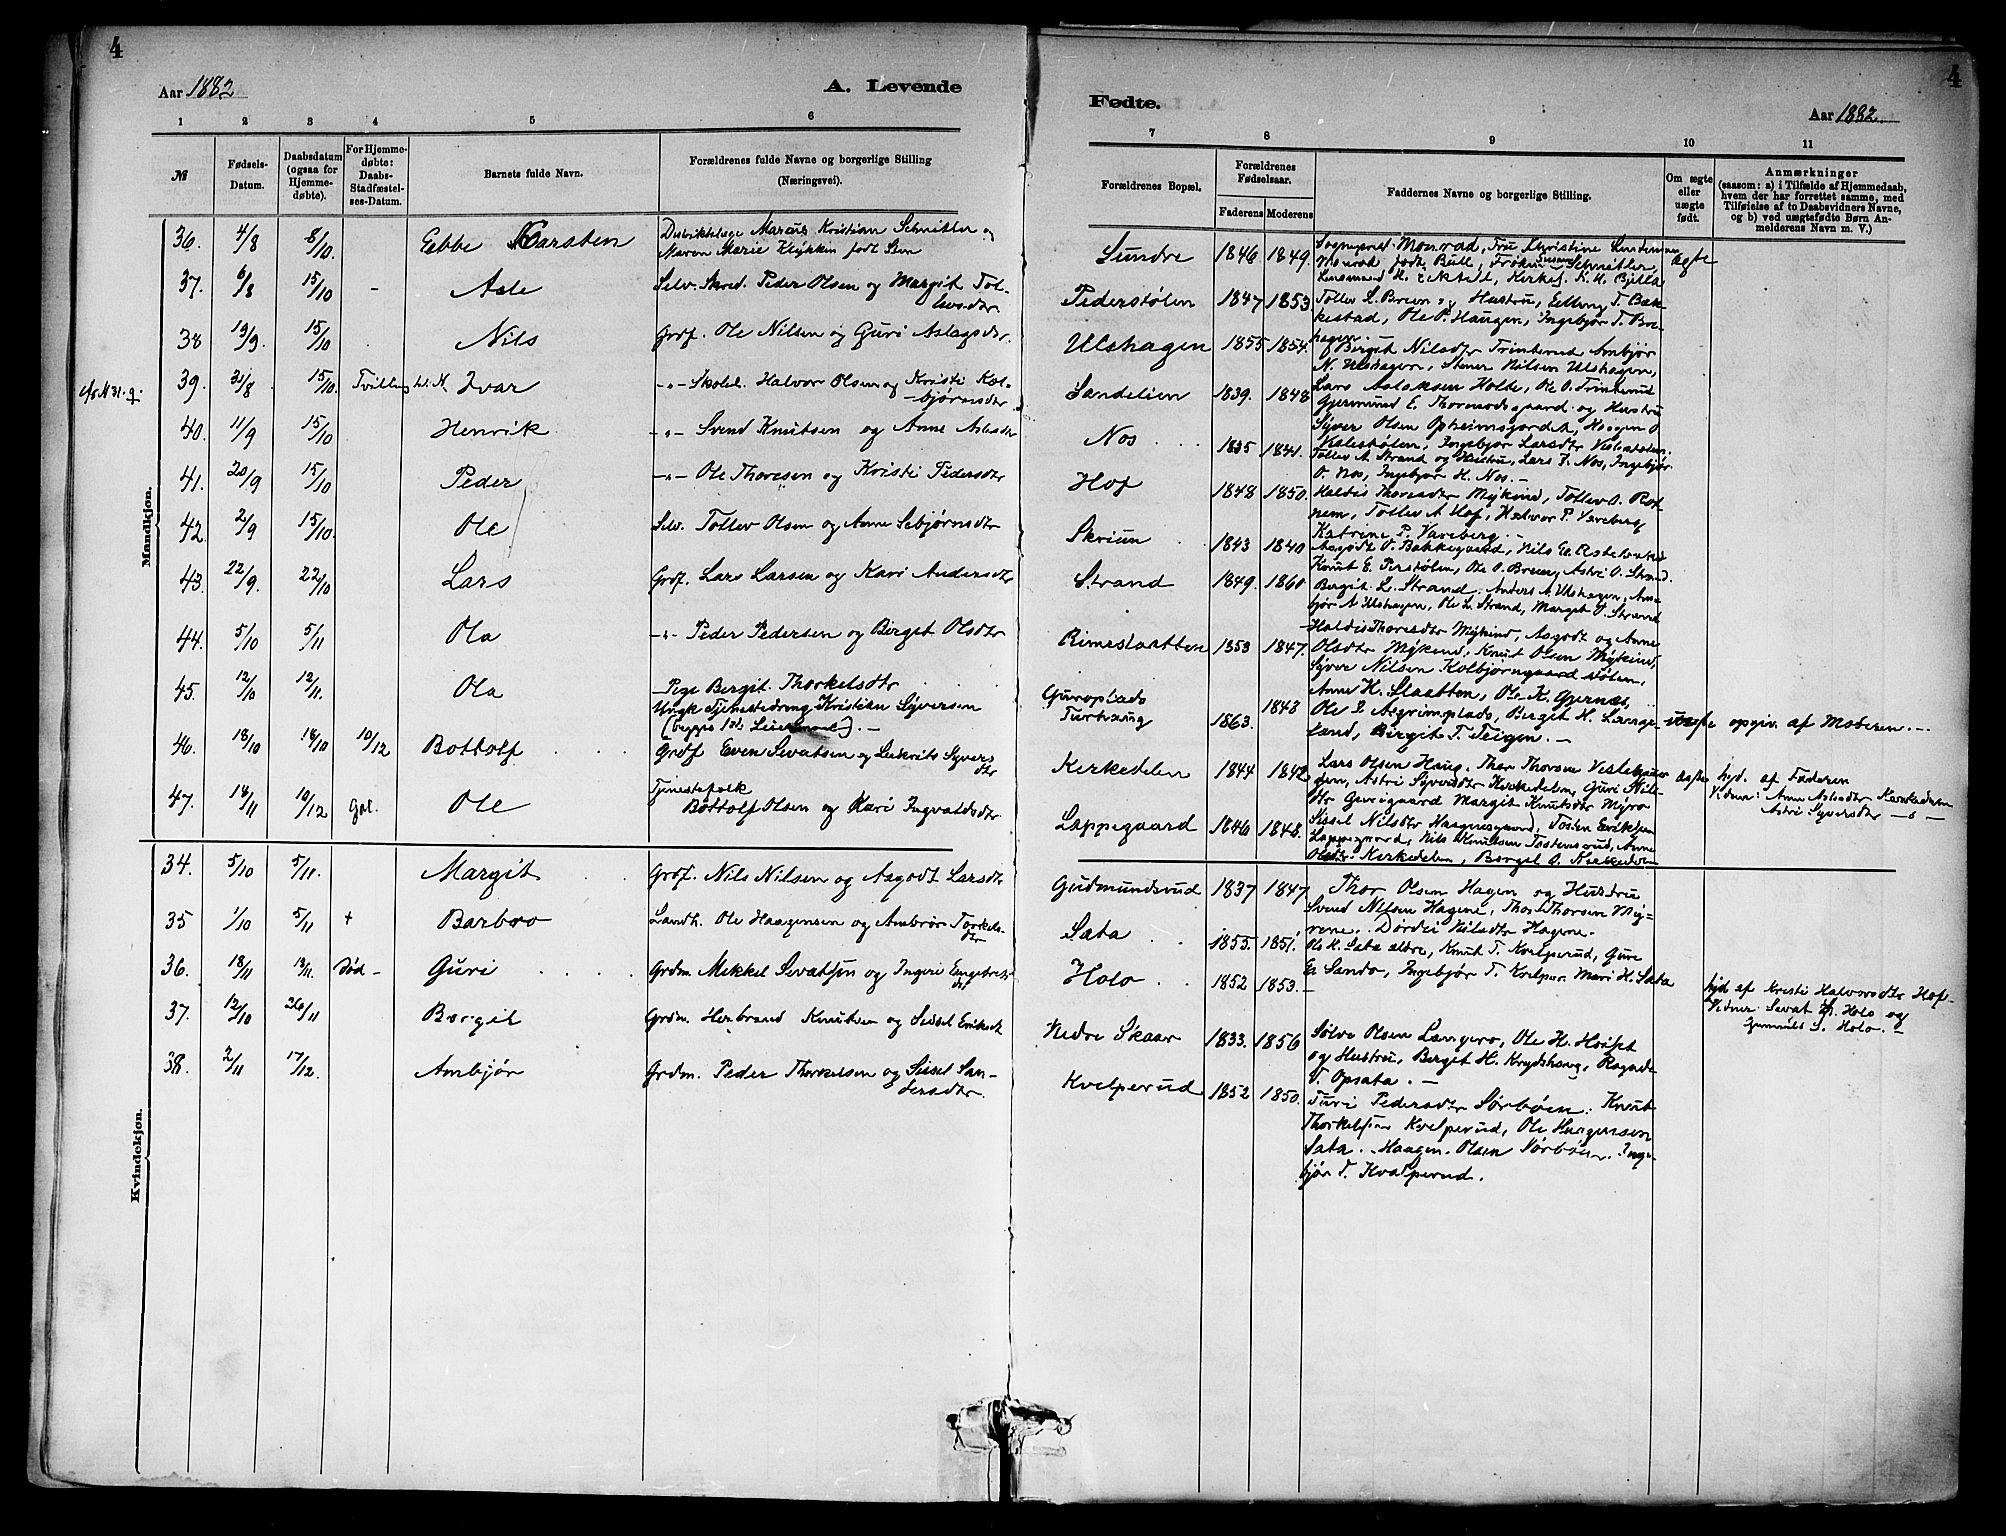 4
Aar 1882
A. Levende
1 2 3 4 5 6
№
Fødsels-Datum.
Daabsdatum (ogsaa for Hjemmedøbte).
For Hjemmedøbte: Daabs-Stadfæstelses-Datum.
Barnets fulde Navn.
Forældrenes fulde Navne og borgerlige Stilling (Næringsvei).
Mandkjøn.
36. 4/8 8/10 Ebbe Karsten Distriktslæge Marcus Kristian Schnitler og
Maren Marie født
37. 6/8 15/10 - Asle Selv. Skred. Peder Olsen og Margit Tol-
levsdtr
38 19/9 15/10 Nils Grdf. Ole Nilsen og Guri Aslagsdtr.
39. 31/8 15/10. Tvilling Ivar -"- Skolel. Halvor Olsen og Kristi Kol-
bjørnsdtr
40. 11/9 15/10 Henrik -"- Svend Knutsen og Anne Aslesdtr
41. 20/9 15/10 Peder -"- Ole Thoresen og Kristi Pedersdtr
42. 2/9 15/10. Ole Selv. Tollev Olsen og Anne Sebjørnsdtr
43. 22/9 22/10 Lars Grdf. Lars Larsen og Kari Andersdtr
44. 5/10 5/11 Ola -"- Peder Pedersen og Berget Olsdtr
45. 12/10 12/11. Ola Pige Bergit Thorkelsdtr
Ungk Tjenestedreng Kristian Syversen
(begges 1ste Leiermaal). -
46. 18/10 18/10 10/12 Bottolf Grdf Even Sevatsen og Syvers
dtr
47. 14/11 10/12 Ole Tjenestefolk
Bottolf Olsen og Kari Ingvaldsdtr
Kvindekjøn.
34. 5/10 5/11. Margit Grdf. Nils Nilsen og Asgodt Larsdtr
35 1/10 5/11 + Barbro Landh. Ole Haagensen og Ambrør Torkels-
dtr
36. 18/11 Død - Guri Grdm. Mekkel Sevatsen og Ingeri Engebrets
dtr
37. 12/10 26/11 Bergit Grdm. Herbrand Knutsen og Sissel Eriksdt
38. 2/11 17/12. Ambjør Grdm. Peder Thorkelsen og Sissel San-
dersdtr.
4
Fødte.
Aar 1882
7 8 9 10 11
Forældrenes Bopæl.
Forældrenes Fødselsaar.
Faderens Moderens
Faddernes Navne og borgerlige Stilling.
Om ægte eller uægte født.
Anmærkninger
(saasom: a) i Tilfælde af Hjemmedaab,
hvem der har forrettet samme, med
Tilføielse af to Daabsvidners Navne,
og b) ved uægtefødte Børn An-
melderens Navn m. V.)
Sundre 1846 1849. Sogneprest Monrad, Fru Christine
Monrad født Bull, Frøken Susan Schnitler,
Lensmand H. Kirkes. K. H. Bjella
ægte
Pederstølen 1847 1853. Tollev L. Breien og Hustru, Elling T. Bak-
kestad, Ole P. Haugen, Ingebjør T. Bre-
Ulshagen 1855 1854. Berget Nilsdtr Trinterud Ambjør
N. Ulshagen, Stener Nilsen Ulshagen,
Sandelien 1839. 1848 Lars Aslaksen Holte, Ole O. Trinterud
Gjermund E. Thormodsgaard og Hustru
Nos 1835 1841. Syver Olsen Opheimsgardet, Haagen O
Ingebjør Larsdtr
Tollev A Strand og Hustru, Lars T. Nos, Ingebjør
O. Nos, Ingebjør H. Nos. -
Hof 1848 1850. Haldis Thoresdtr Mykind, Tollev O. Rot-
nem, Tollev A Hof, Halvor P. Vareberg
Katrine P. Vareberg. -
Skriun 1843 1840 Asgodt O. Bakkegaard, Nils
Knut E. Perstølen, Ole O. Breie, Astri O. Strand.
Strand 1849. 1860 Bergit L. Strand. Anders A. Ulshagen, Am-
bjør A Ulshagen, Ole L. Strand, Marget O. Strand
Rimeslaatten 1853 1847. Haldis Thoresdtr Mykind, Asgodt og Anne
Olsdtr Mykind, Knut Olsen Mykind,
Syver Nilsen Kolbjørngaardstølen,
Anne H. Slaatten, Ole K. Gjernæs,
Guroplads
Turhaug 1863. 1843 Ole L Asgrimplads, Berget H. Lange-
land, Birgit T. Teigen. -
uægte opgiv. af Moderen. -
Kirkedelen 1844 1842 Lars Olsen Haug. Thor Thorsen
Astri Syversdtr Kirkedelen, Guri Nils-
dtr Margit Knutsdtr Myro
ægte hjd. af Faderen
Vidner: Anne Aslesdtr Kerkedelen
Astri Syversdtr - " -
Lappegaard 1846 1848. Sissel Nilsdtr Haagnesgaard, Tosten Eriksen
Lappegaard, Nils Knutsen Tostensrud, Anne
Olsdtr. Kirkedelen, Bergit O. Kirkedelen
Gudmundsrud 1837 1847 Thor Olsen Hagen og Hustru
Svend Nilsen Hagene, Thor Thorsen Myr-
rene, Dordei Nilsdtr Hagene.
Sata 1855. 1851. Ole K. Sata ældre, Knut T. Kvelperud, Guri
E. Sando, Ingebjør T. Kvelper. Mari H. Sata
Holo 1852 1853. -
hjd af Kristi Halvorsdtr Hof
Vidner: Sevat H. Holo og
S. Holo. -
Nedre Skaar 1833. 1856 Sølve Olsen Langero, Ole H.
og Hustru, Berget H. Krydshaug, Ragnde
O. Opsata. -
Kvelperud 1852 1850. Turi Pedersdtr Sørbøen, Knut
Thorkelsen Kvelperud, Ole Haagensen
Sata. Haagen Olsen Sørbøen. Inge-
bjør T. Kvelperud.